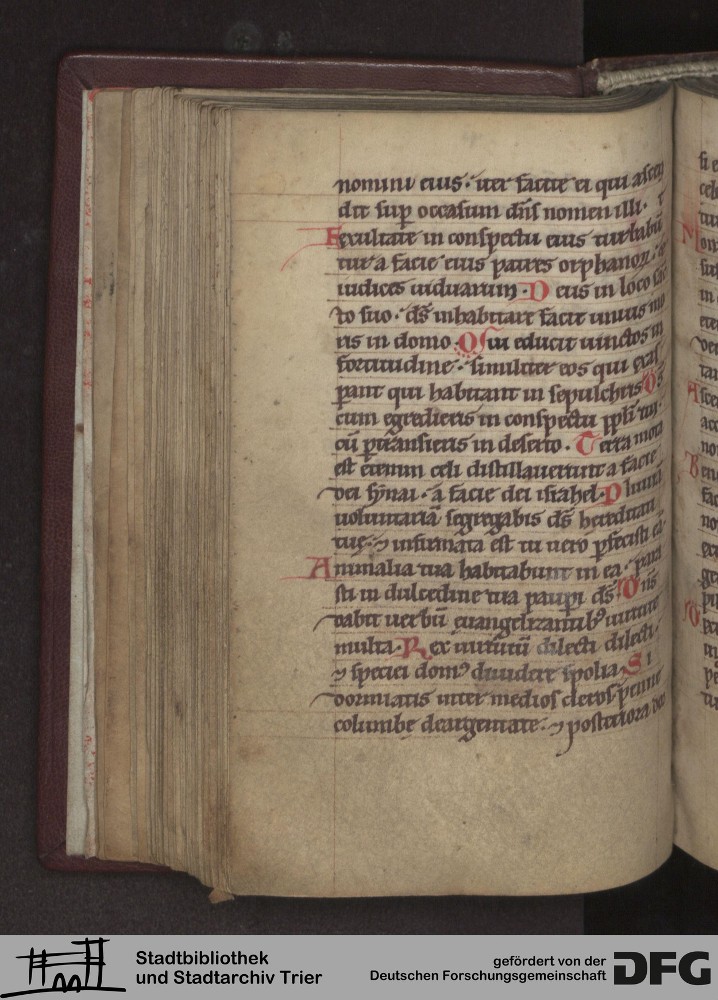 nomini eius · iter facite ei qui ascen
dit sup occasum dns nomen illi ·
Exultate in conspectu eius turbabū
tur a facie eius patres orphanoꝝ · ⁊
iudices uiduarum · Deus in loco sāc
to suo · ds inhabitare facit unius mo
ris in domo · Qui educit uinctos in
fortitudine · similiter eos qui exas
perant qui habitant in sepulchris Ds
cum egredieris in conspectu ppli tui ·
cū ptransieris in deserto · Terra mota
est etenim celi distillauerunt a facie
dei synai · a facie dei israhel · Pluuiā
uoluntariā segregabis ds hereditati
tue · ⁊ infirmata est tu uero pfecisti eā ·
Animalia tua habitabunt in ea · para
sti in dulcedine tua paupi ds · Dns
dabit uerbū euangelizantibꝫ uirtute
multa · Rex uirtutū dilecti dilecti ·
⁊ speciei domꝰ diuidere spolia · Si
dormiatis inter medios cleros penne
columbe deargentate · ⁊ posteriora dor
Stadtbibliothek
und Stadtarchiv Trier
gefördert von der
Deutschen Forschungsgemeinschaft
DFG